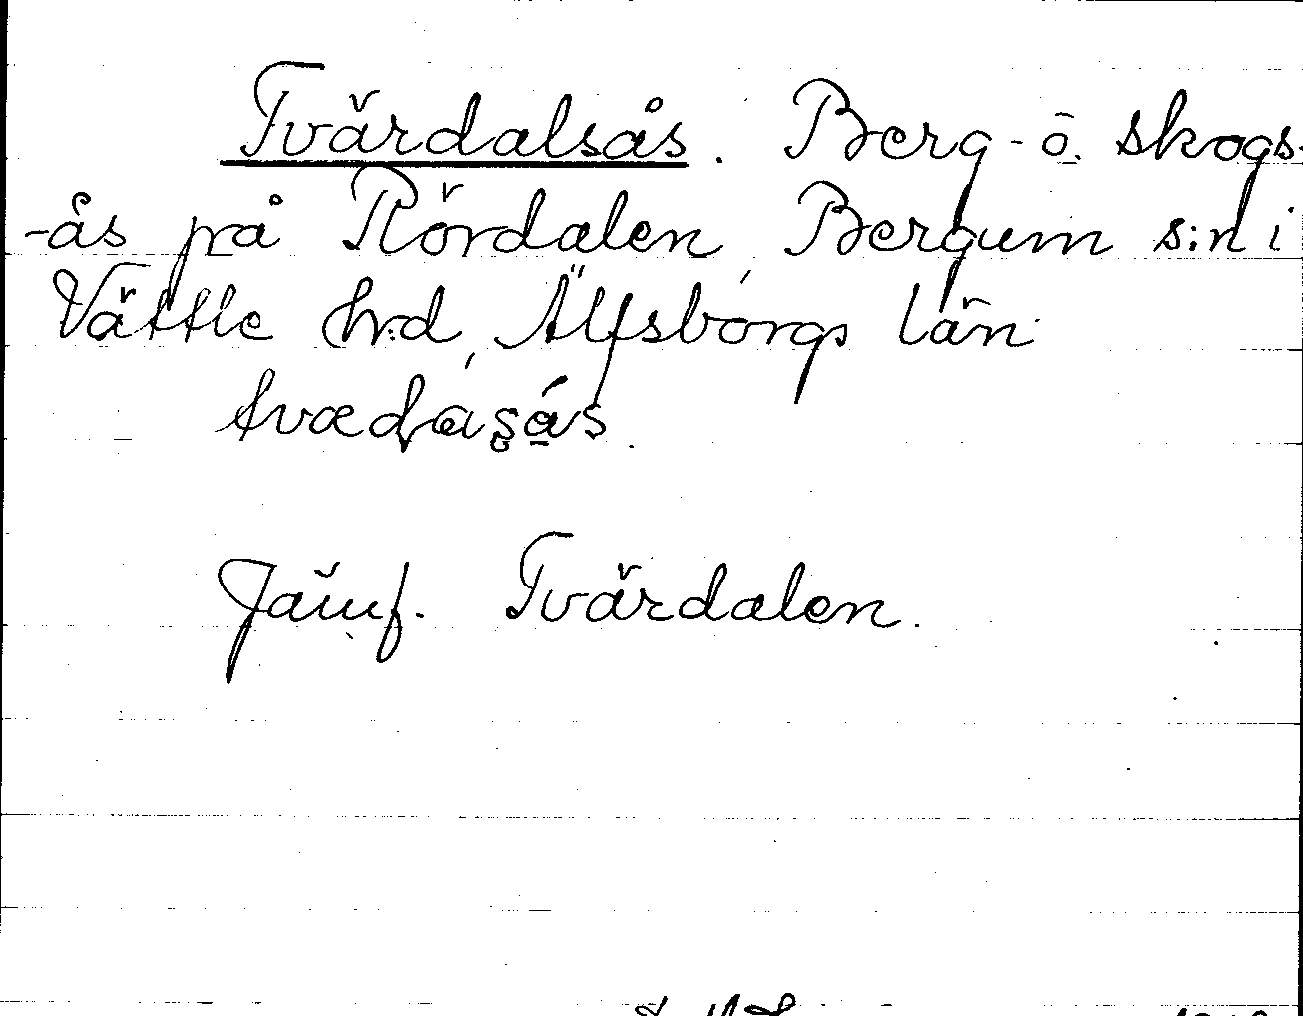 Tvärdalsås. Berg- o. skogs-
-ås på Rördalen, Bergum s:n i
Vättle hrd, Älfsborgs län.

Jämf. Tvärdalen.